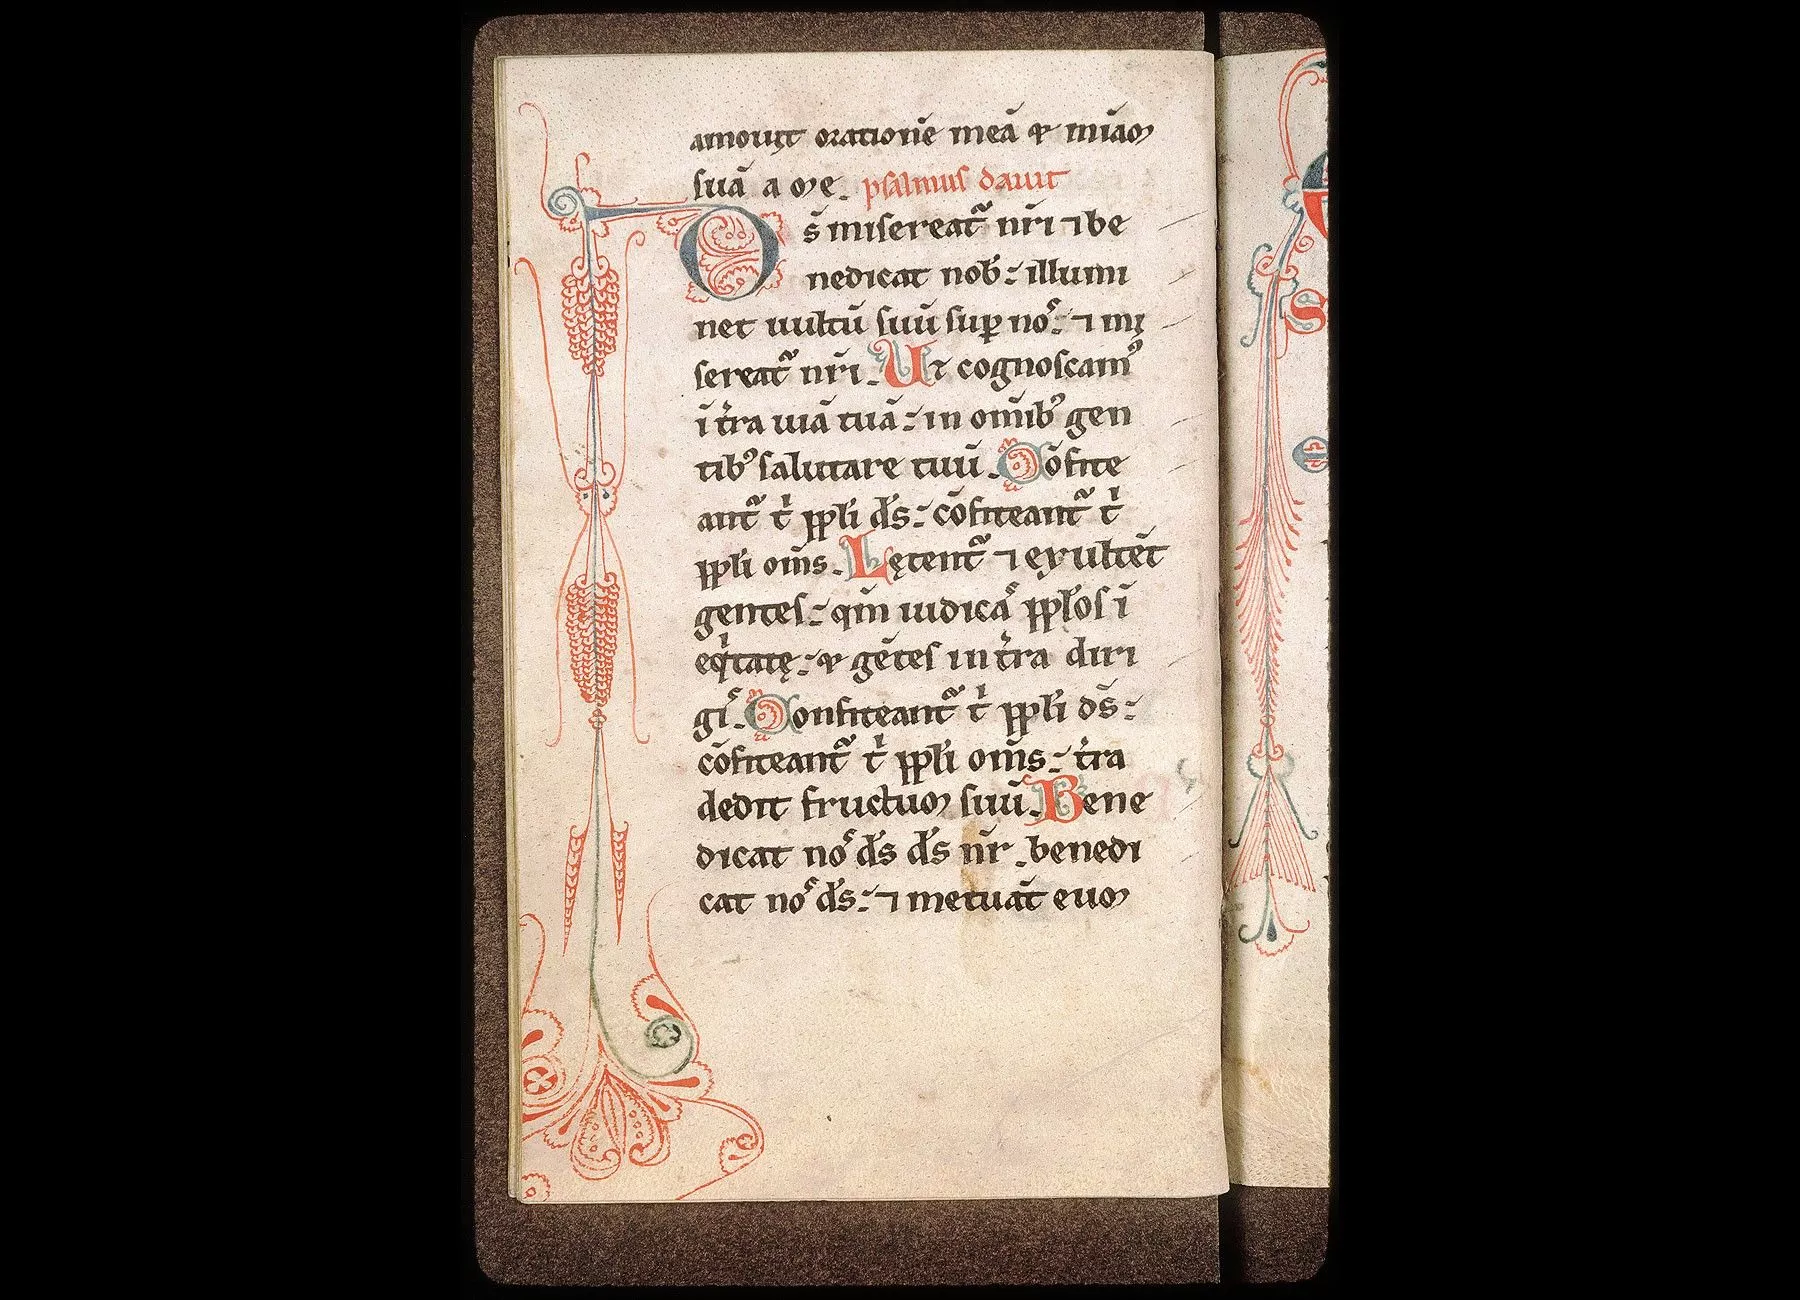 amouit orationē meā ⁊ miām
suā a me. psalmus dauit
Ds̄ misereat᷑ nr̄i ⁊ be
nedicat nob̄: illumi
net uultū suū suꝑ noˢ: ⁊ mi
sereat᷑ nr̄i. Ut cognoscamꝰ
ī tr̄a uiā tuā: in om̄ibꝰ gen
tibꝰ salutare tuū. Cōfite
ant᷑ tⁱ ppl̄i ds̄: cōfiteant᷑ tⁱ
ppl̄i om̄s. Lętent᷑ ⁊ exultēt
gentes: qm̄ iudicaˢ ppl̄os ī
eqⁱtatę: ⁊ gētes in tr̄a diri
giˢ. Confiteant᷑ tⁱ ppl̄i ds̄:
cōfiteant᷑ tⁱ ppl̄i om̄s: tr̄a
dedit fructum suū. Bene
dicat noˢ ds̄ ds̄ nr̄. benedi
cat noˢ ds̄: ⁊ metuāt eum